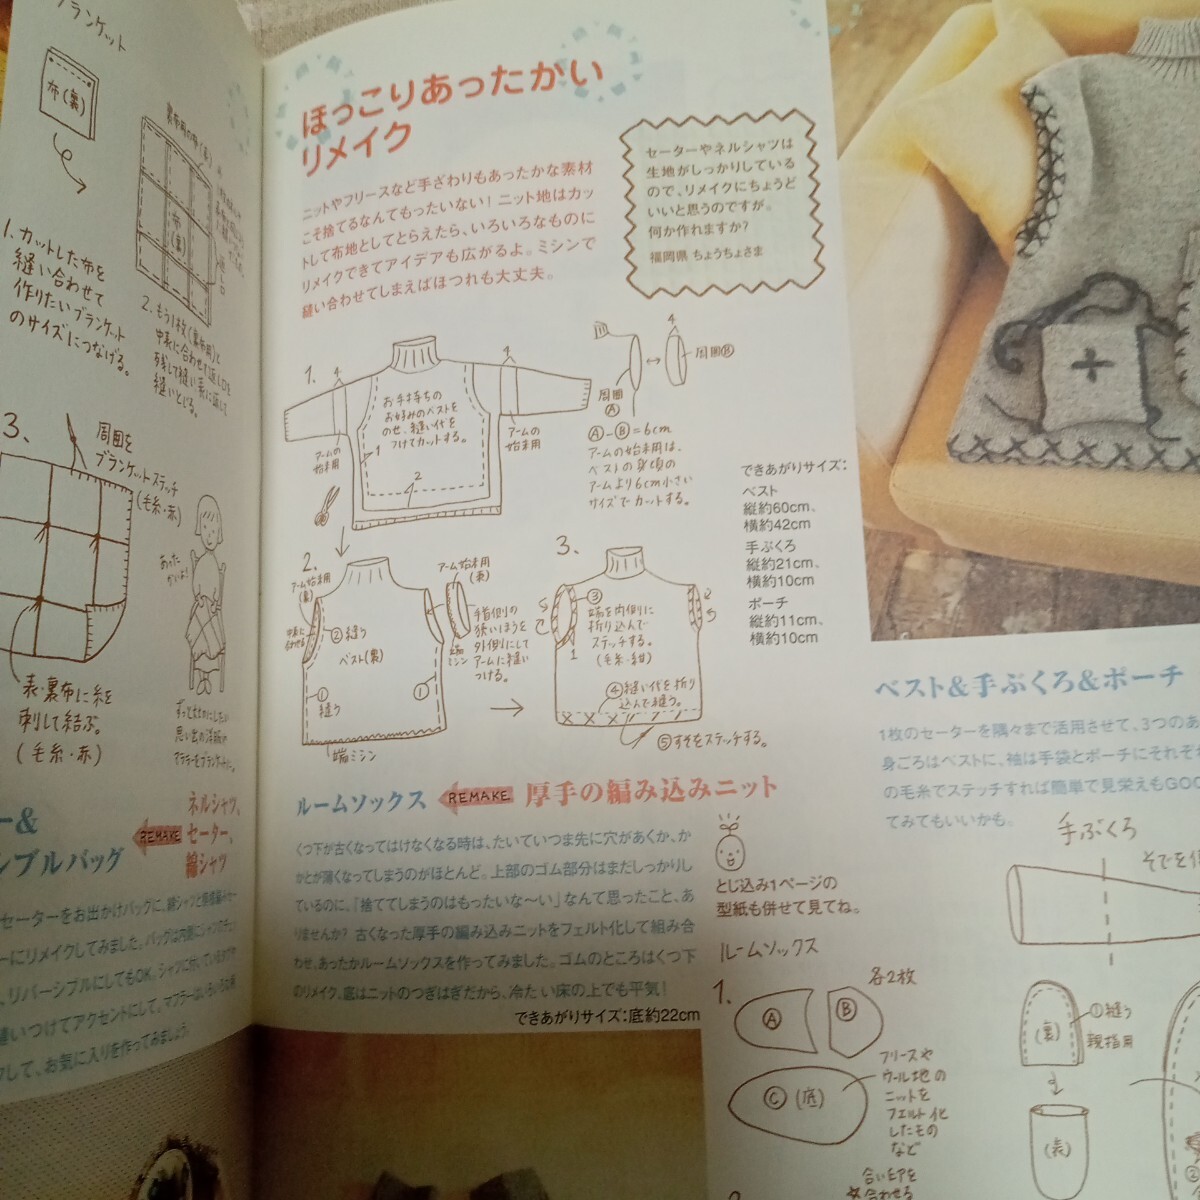 ブランケット
布(裏)
布(裏)
1.カットした布を
縫い合わせて
作りたいブランケット
のサイズにつなげる。
2.もう1枚(裏布用)と
中表に合わせて返し口を
残して縫い表に返して
縫いとじる。
3.
周囲を
ブランケットステッチ
(毛糸・赤)
あった
かいよ!
表・裏布に糸を
刺して結ぶ。
(毛糸・赤)
ー&
ンブルバッグ
REMAKE
ネルシャツ、
セーター、
綿シャツ
ほっこりあったかい
リメイク
ニットやフリースなど手ざわりもあったかな素材
こそ捨てるなんてもったいない! ニット地はカッ
トして布地としてとらえたら、いろいろなものに
リメイクできてアイデアも広がるよ。ミシンで
縫い合わせてしまえばほつれも大丈夫。
セーターやネルシャツは
生地がしっかりしている
ので、リメイクにちょうど
いいと思うのですが。
何か作れますか?
福岡県 ちょうちょさま
1.
4
4
お手持ちの
お好みのベストを
のせ、縫い代を
つけてカットする。
1
2
アームの
始末用
アームの
始末用
4
周囲Ⓑ
周囲
Ⓐ
Ⓐ−Ⓑ=6cm
アームの始末用は、
ベストの身頃の
アームより6cm小さい
サイズでカットする。
できあがりサイズ:
ベスト
縦約60cm、
横約42cm
手ぶくろ
縦約21cm、
横約10cm
ポーチ
縦約11cm、
横約10cm
2.
アーム始末用
(裏)
中表に
合わせる
②縫う
ベスト(裏)
①
縫う
①
端ミシン
アーム始末用
(表)
端
ミシン
手首側の
狭いほうを
外側にして
アームに縫い
つける。
3.
③
端を内側に
折り込んで
ステッチする。
(毛糸・紺)
1
④縫い代を折り
込んで縫う。
⑤すそをステッチする。
ルームソックス
REMAKE
厚手の編み込みニット
くつ下が古くなってはけなくなる時は、たいていつま先に穴があくか、か
かとが薄くなってしまうのがほとんど。上部のゴム部分はまだしっかりし
ているのに。「捨ててしまうのはもったいな〜い」なんて思ったこと、あ
りませんか? 古くなった厚手の編み込みニットをフェルト化して組み合
わせ、あったかルームソックスを作ってみました。ゴムのところはくつ下
のリメイク。底はニットのつぎはぎだから、冷たい床の上でも平気!
できあがりサイズ:底約22cm
とじ込み1ページの
型紙も併せて見てね。
ルームソックス
1.
各2枚
Ⓐ
Ⓑ
Ⓒ(底)
フリースや
ウール地の
ニットを
フェルト化
したもの
など
合い印を
合わせる
ベスト&手ぶくろ&ポーチ
1枚のセーターを隅々まで活用させて、3つのあ
身ごろはベストに、袖は手袋とポーチにそれぞれ
の毛糸でステッチすれば簡単で見栄えもGOO
てみてもいいかも。
手ぶくろ
そでを使
(裏)
①縫う
親指用
(表)